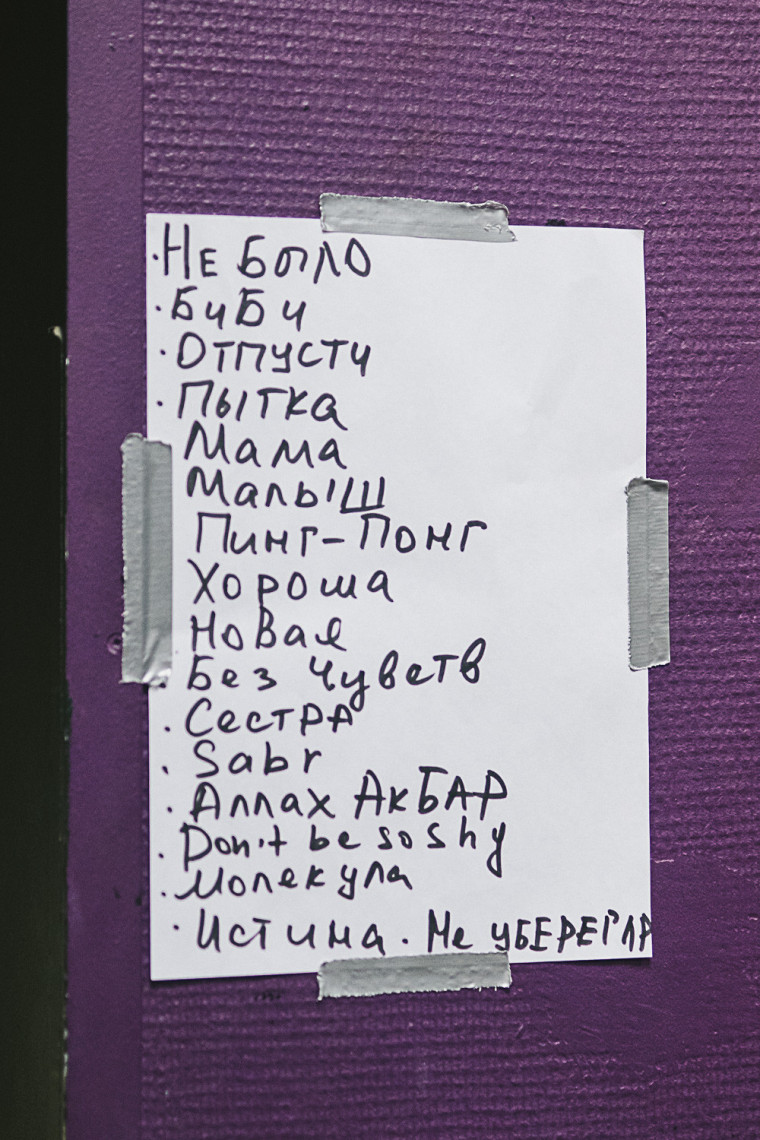 · Не было
· БиБи
· Отпусти
· Пытка
Мама
Малыш
Пинг-Понг
Хороша
Новая
· Без Чувств
· Сестра
· Sabr
· Аллах АкБАР
· Don't be so shy
· Молекула
· Истина. Не